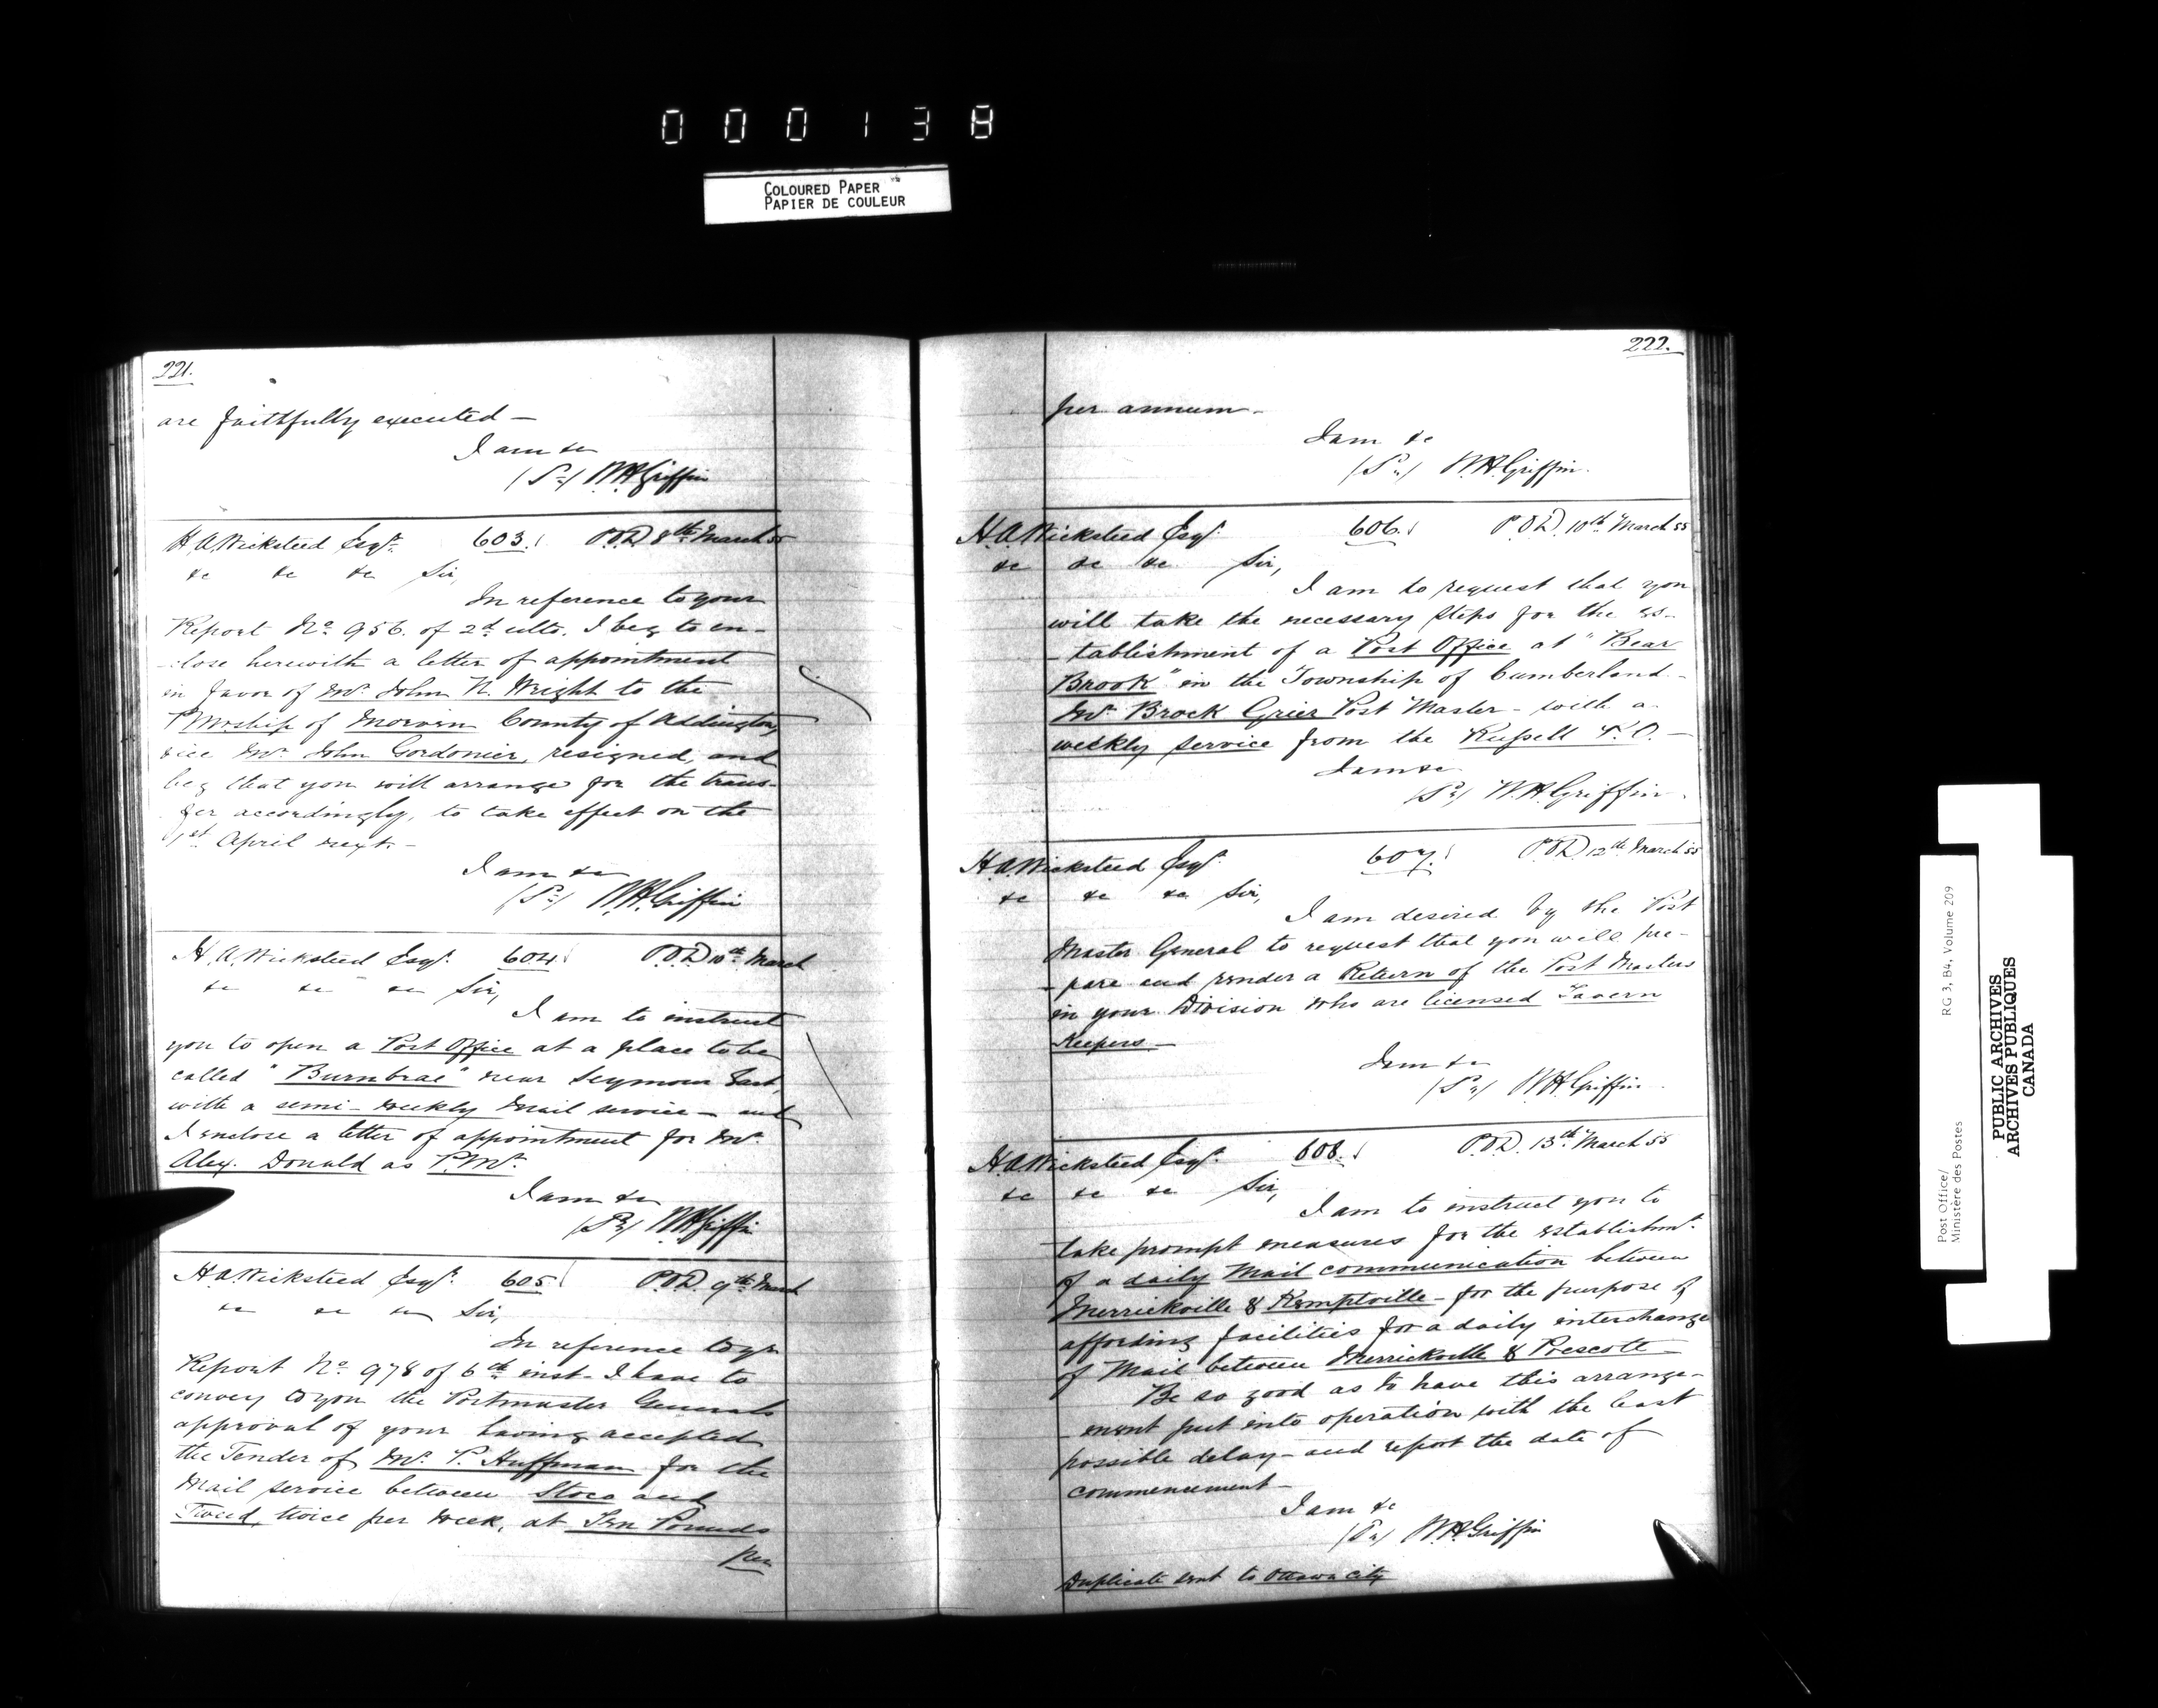 000138
COLOURED PAPER
PAPIER DE COULEUR
221.
are faithfully executed —
I am &c
(Sd) W.H. Griffin
H A Wicksteed Esqr. 603. P.O.D. 8th March 55
&c &c &c Sir,
In reference to your
Report No. 956. of 2d ulto. I beg to en-
-close herewith a letter of appointment
in favor of Mr. John N. Wright to the
PMrship of Morven County of Addington
vice Mr. John Gordonier, resigned, and
beg that you will arrange for the trans-
fer accordingly, to take effect on the
1st April next. —
I am &c
(Sd) W.H. Griffin
H. A. Wicksteed Esqr. 604. P.O.D 10th March
&c &c &c Sir,
I am to instruct
you to open a Post Office at a place to be
called "Burnbrae" near Seymour East,
with a semi-weekly Mail service — and
I enclose a letter of appointment for Mr.
Alex. Donald as P.Mr.
I am &c
(Sd) W.H. Griffin
H A Wicksteed Esqr. 605 P.O.D. 9th March
&c &c &c Sir,
In reference to yr
Report No. 978 of 6th inst - I have to
convey to you the Postmaster Generals
approval of your having accepted
the Tender of Mr. P. Huffman for the
Mail service between Stoco and
Tweed, twice per week, at Ten Pounds
per
222.
per annum -
I am &c
(Sd) W.H. Griffin.
H. A. Wicksteed Esqr. 606. P.O.D. 10th March 55
&c &c &c Sir,
I am to request that you
will take the necessary steps for the es-
-tablishment of a Post Office at "Bear
Brook" in the Township of Cumberland -
Mr. Brock Grier Post Master - with a
weekly service from the Russell P.O. —
I am &c
(Sd) W.H. Griffin.
H. A. Wicksteed Esqr. 607. P.O.D. 12th March 55
&c &c &c Sir,
I am desired by the Post
Master General to request that you will pre-
-pare and render a Return of the Post Masters
in your Division who are licensed Tavern
Keepers —
I am &c
(Sd) W.H. Griffin
H. A. Wicksteed Esqr. 608. P.O.D. 13th March 55
&c &c &c Sir,
I am to instruct you to
take prompt measures for the establishmt.
of a daily Mail communication between
Merrickville & Kemptville - for the purpose of
affording facilities for a daily interchange
of Mail between Merrickville & Prescott —
Be so good as to have this arrange-
-ment put into operation with the least
possible delay - and report the date of
commencement —
I am &c
(Sd) W.H. Griffin
Duplicate sent to Ottawa City
Post Office/
Ministère des Postes
RG 3, B4, Volume 209
PUBLIC ARCHIVES
ARCHIVES PUBLIQUES
CANADA